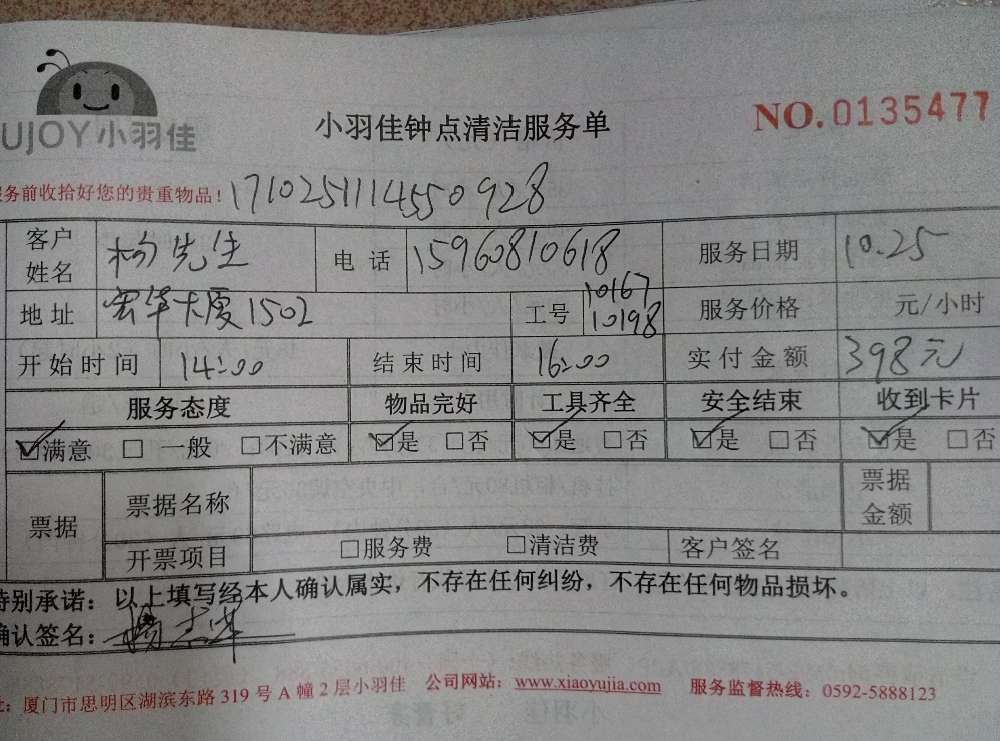 UJOY小羽佳
小羽佳钟点清洁服务单
NO.0135477
务前收拾好您的贵重物品! 1710251114550928
客户姓名 杨先生 电话 15960810618 服务日期 10.25
地址 宏华大厦1502 工号 10167 10198 服务价格 元/小时
开始时间 14:00 结束时间 16:00 实付金额 398元
服务态度 物品完好 工具齐全 安全结束 收到卡片
☑满意 □一般 □不满意 ☑是 □否 ☑是 □否 ☑是 □否 ☑是 □否
票据 票据名称 票据金额
开票项目 □服务费 □清洁费 客户签名
特别承诺：以上填写经本人确认属实，不存在任何纠纷，不存在任何物品损坏。
确认签名：
址：厦门市思明区湖滨东路 319 号 A 幢 2 层小羽佳 公司网站：www.xiaoyujia.com 服务监督热线：0592-5888123